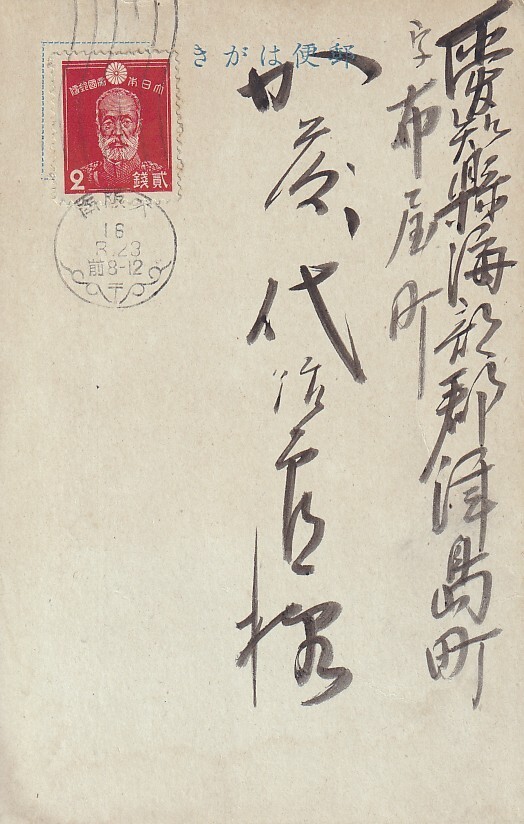 郵便はがき
愛知縣海部郡津島町
字布屋町
加藤代治
様
大日本帝國郵便
2 貳錢
16
3.23
前8-12